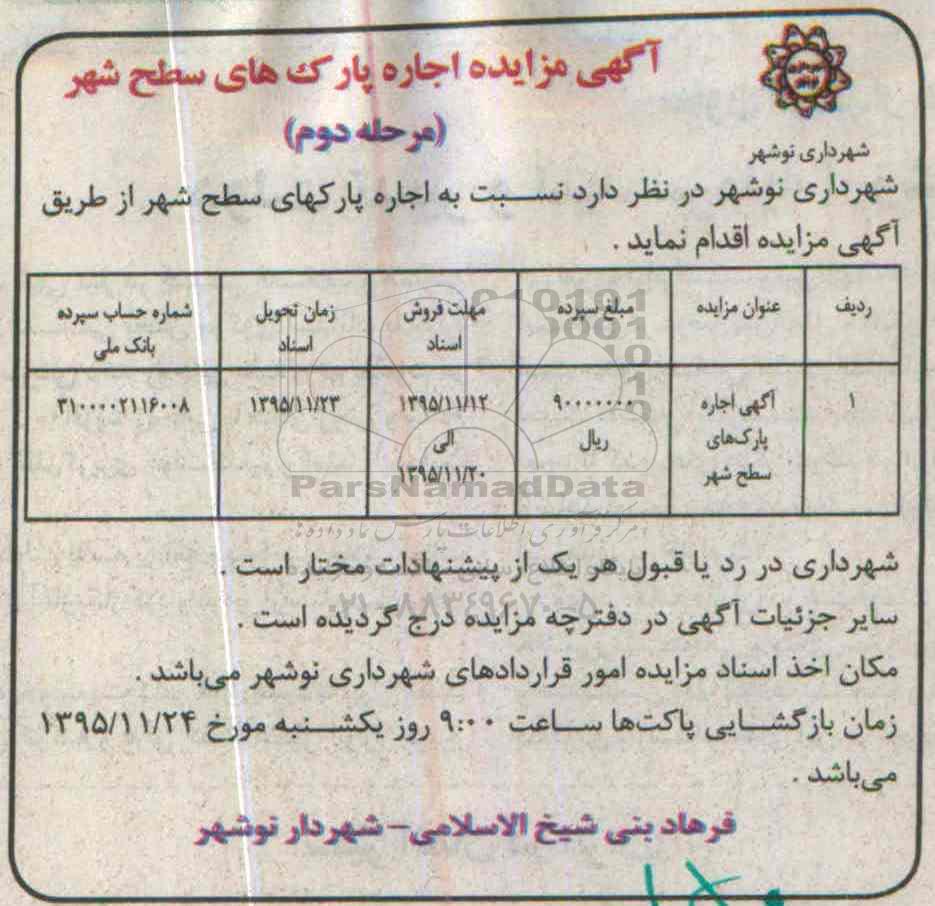 آگهی مزایده اجاره پارک های سطح شهر
(مرحله دوم)
شهرداری نوشهر
شهرداری نوشهر در نظر دارد نسبت به اجاره پارکهای سطح شهر از طریق
آگهی مزایده اقدام نماید .
ردیف عنوان مزایده مبلغ سپرده مهلت فروش اسناد زمان تحویل اسناد شماره حساب سپرده بانک ملی
۱ آگهی اجاره پارک‌های سطح شهر ۹۰۰۰۰۰۰۰ ریال ۱۳۹۵/۱۱/۱۲ الی ۱۳۹۵/۱۱/۲۰ ۱۳۹۵/۱۱/۲۳ ۳۱۰۰۰۰۲۱۱۶۰۰۸
ParsNamadData
مرکز فرآوری اطلاعات پارس نماد داده ها
شهرداری در رد یا قبول هر یک از پیشنهادات مختار است .
۰۲۱-۸۸۳۴۹۶۷۰-۵
سایر جزئیات آگهی در دفترچه مزایده درج گردیده است .
مکان اخذ اسناد مزایده امور قراردادهای شهرداری نوشهر می‌باشد .
زمان بازگشایی پاکت‌ها ساعت ۹:۰۰ روز یکشنبه مورخ ۱۳۹۵/۱۱/۲۴
می‌باشد .
فرهاد بنی شیخ الاسلامی- شهردار نوشهر